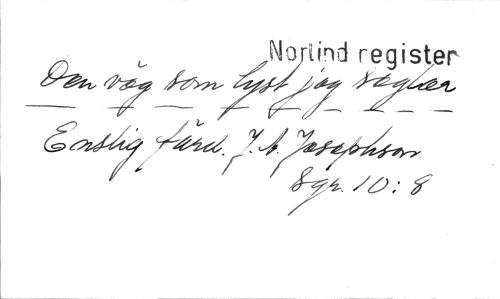 Norlind register
Den väg som lyst jag seglar
Enslig färd. J. A. Josephson
Sgr. 10:8